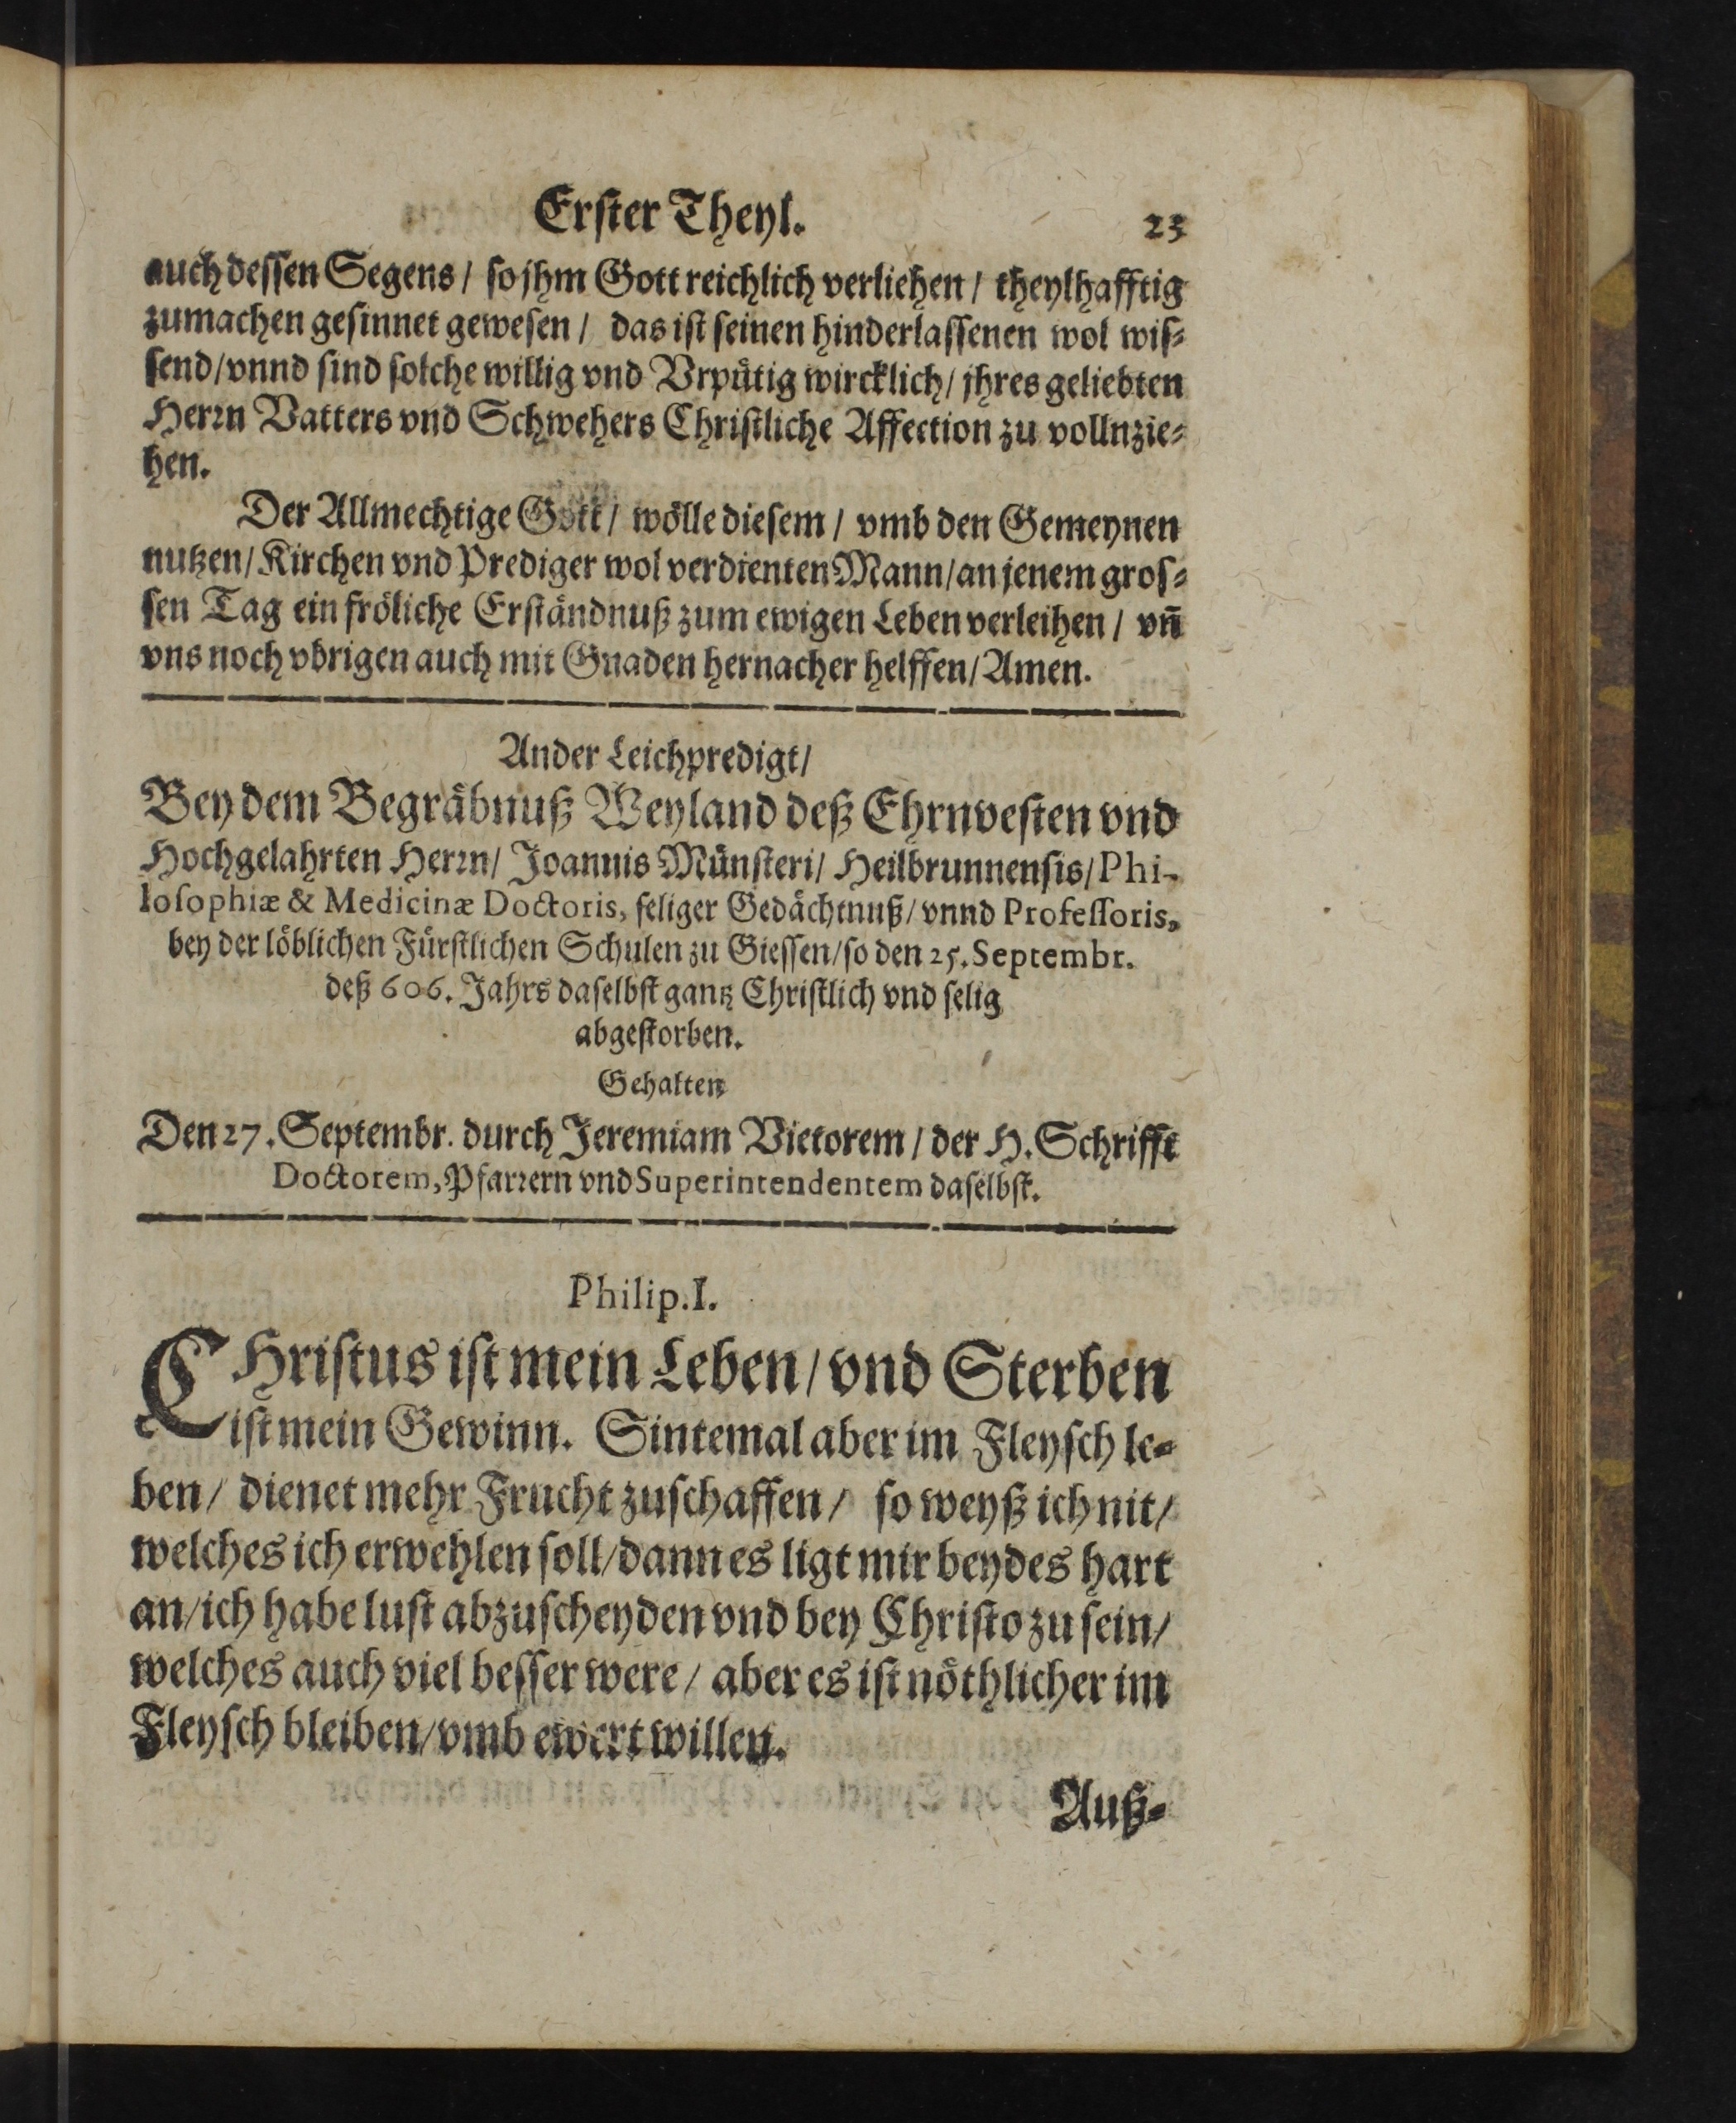 Erster Theyl. 23
auch dessen Segens / so jhm Gott reichlich verliehen / theylhafftig
zumachen gesinnet gewesen / das ist seinen hinderlassenen wol wis-
send/vnnd sind solche willig vnd Vrpütig wircklich/ jhres geliebten
Herrn Vatters vnd Schwehers Christliche Affection zu vollnzie-
hen.
Der Allmechtige Gott / wölle diesem / vmb den Gemeynen
nutzen/Kirchen vnd Prediger wol verdienten Mann/an jenem gros-
sen Tag ein fröliche Erständnuß zum ewigen Leben verleihen / vn̄
vns noch vbrigen auch mit Gnaden hernacher helffen/Amen.
Ander Leichpredigt/
Bey dem Begräbnuß Weyland deß Ehrnvesten vnd
Hochgelahrten Herrn/ Joannis Münsteri/ Heilbrunnensis/Phi-
losophiæ & Medicinæ Doctoris, seliger Gedächtnuß/vnnd Professoris,
bey der löblichen Fürstlichen Schulen zu Giessen/so den 25. Septembr.
deß 606. Jahrs daselbst gantz Christlich vnd selig
abgestorben.
Gehalten
Den 27. Septembr. durch Jeremiam Vietorem / der H. Schrifft
Doctorem, Pfarrern vnd Superintendentem daselbst.
Philip. I.
CHristus ist mein Leben/vnd Sterben
ist mein Gewinn. Sintemal aber im Fleysch le-
ben/ dienet mehr Frucht zuschaffen/ so weyß ich nit/
welches ich erwehlen soll/dann es ligt mir beydes hart
an/ich habe lust abzuscheyden vnd bey Christo zu sein/
welches auch viel besser were/ aber es ist nöthlicher im
Fleysch bleiben/vmb ewert willen.
Auß-